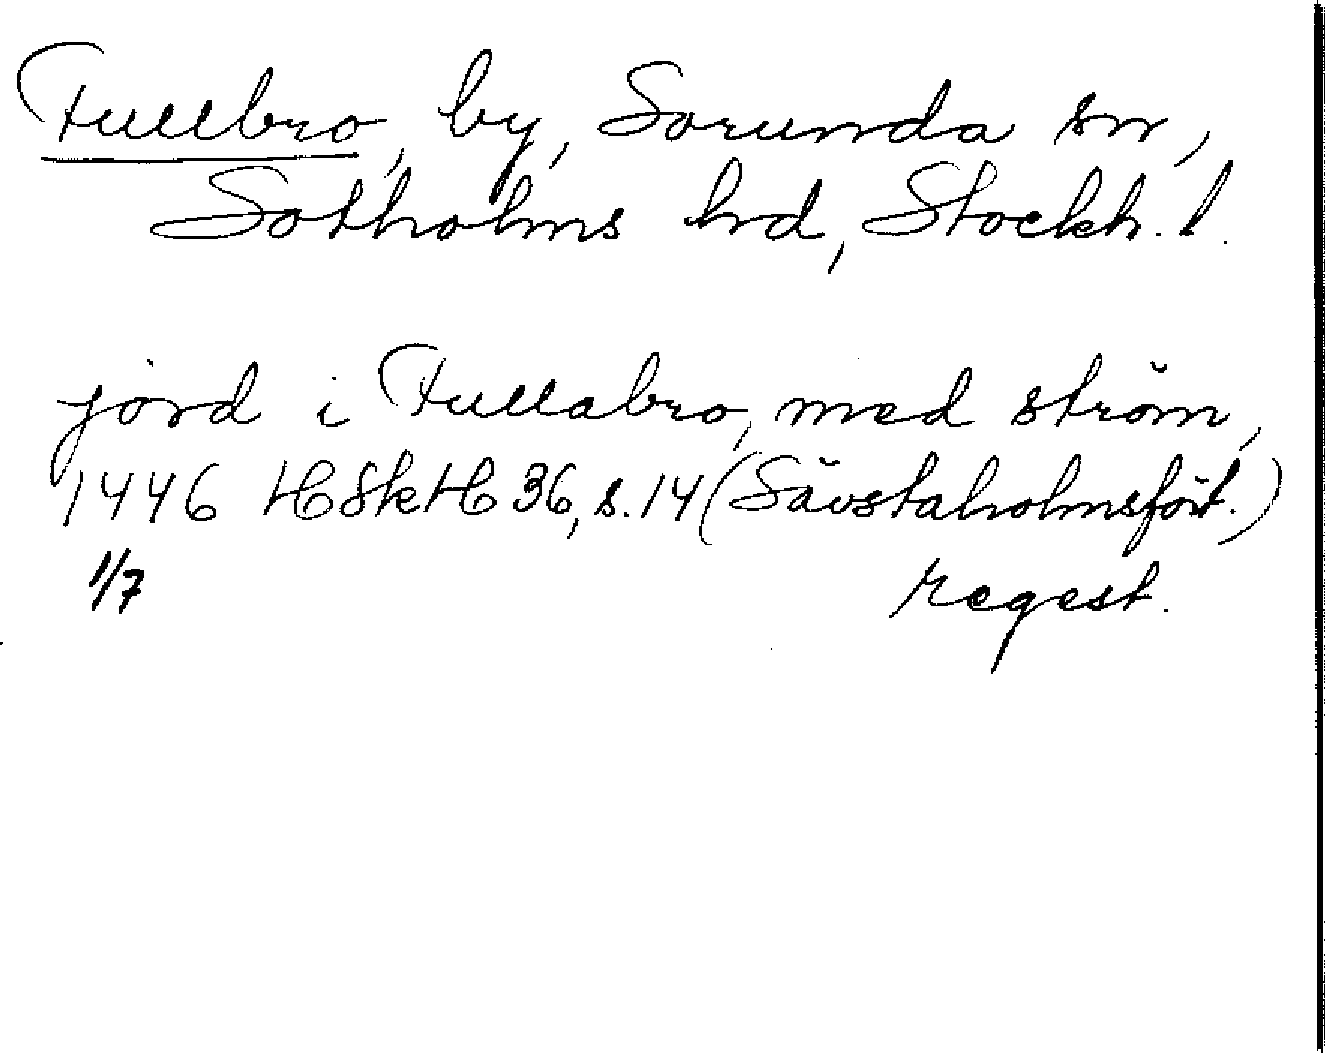 Fullbro, by, Sorunda sn,
Sotholms hd, Stockh. l.
jord i Fullabro, med ström,
1446 HSkH 36, s. 14 (Sävstaholmsfört.)
1/7 regest.